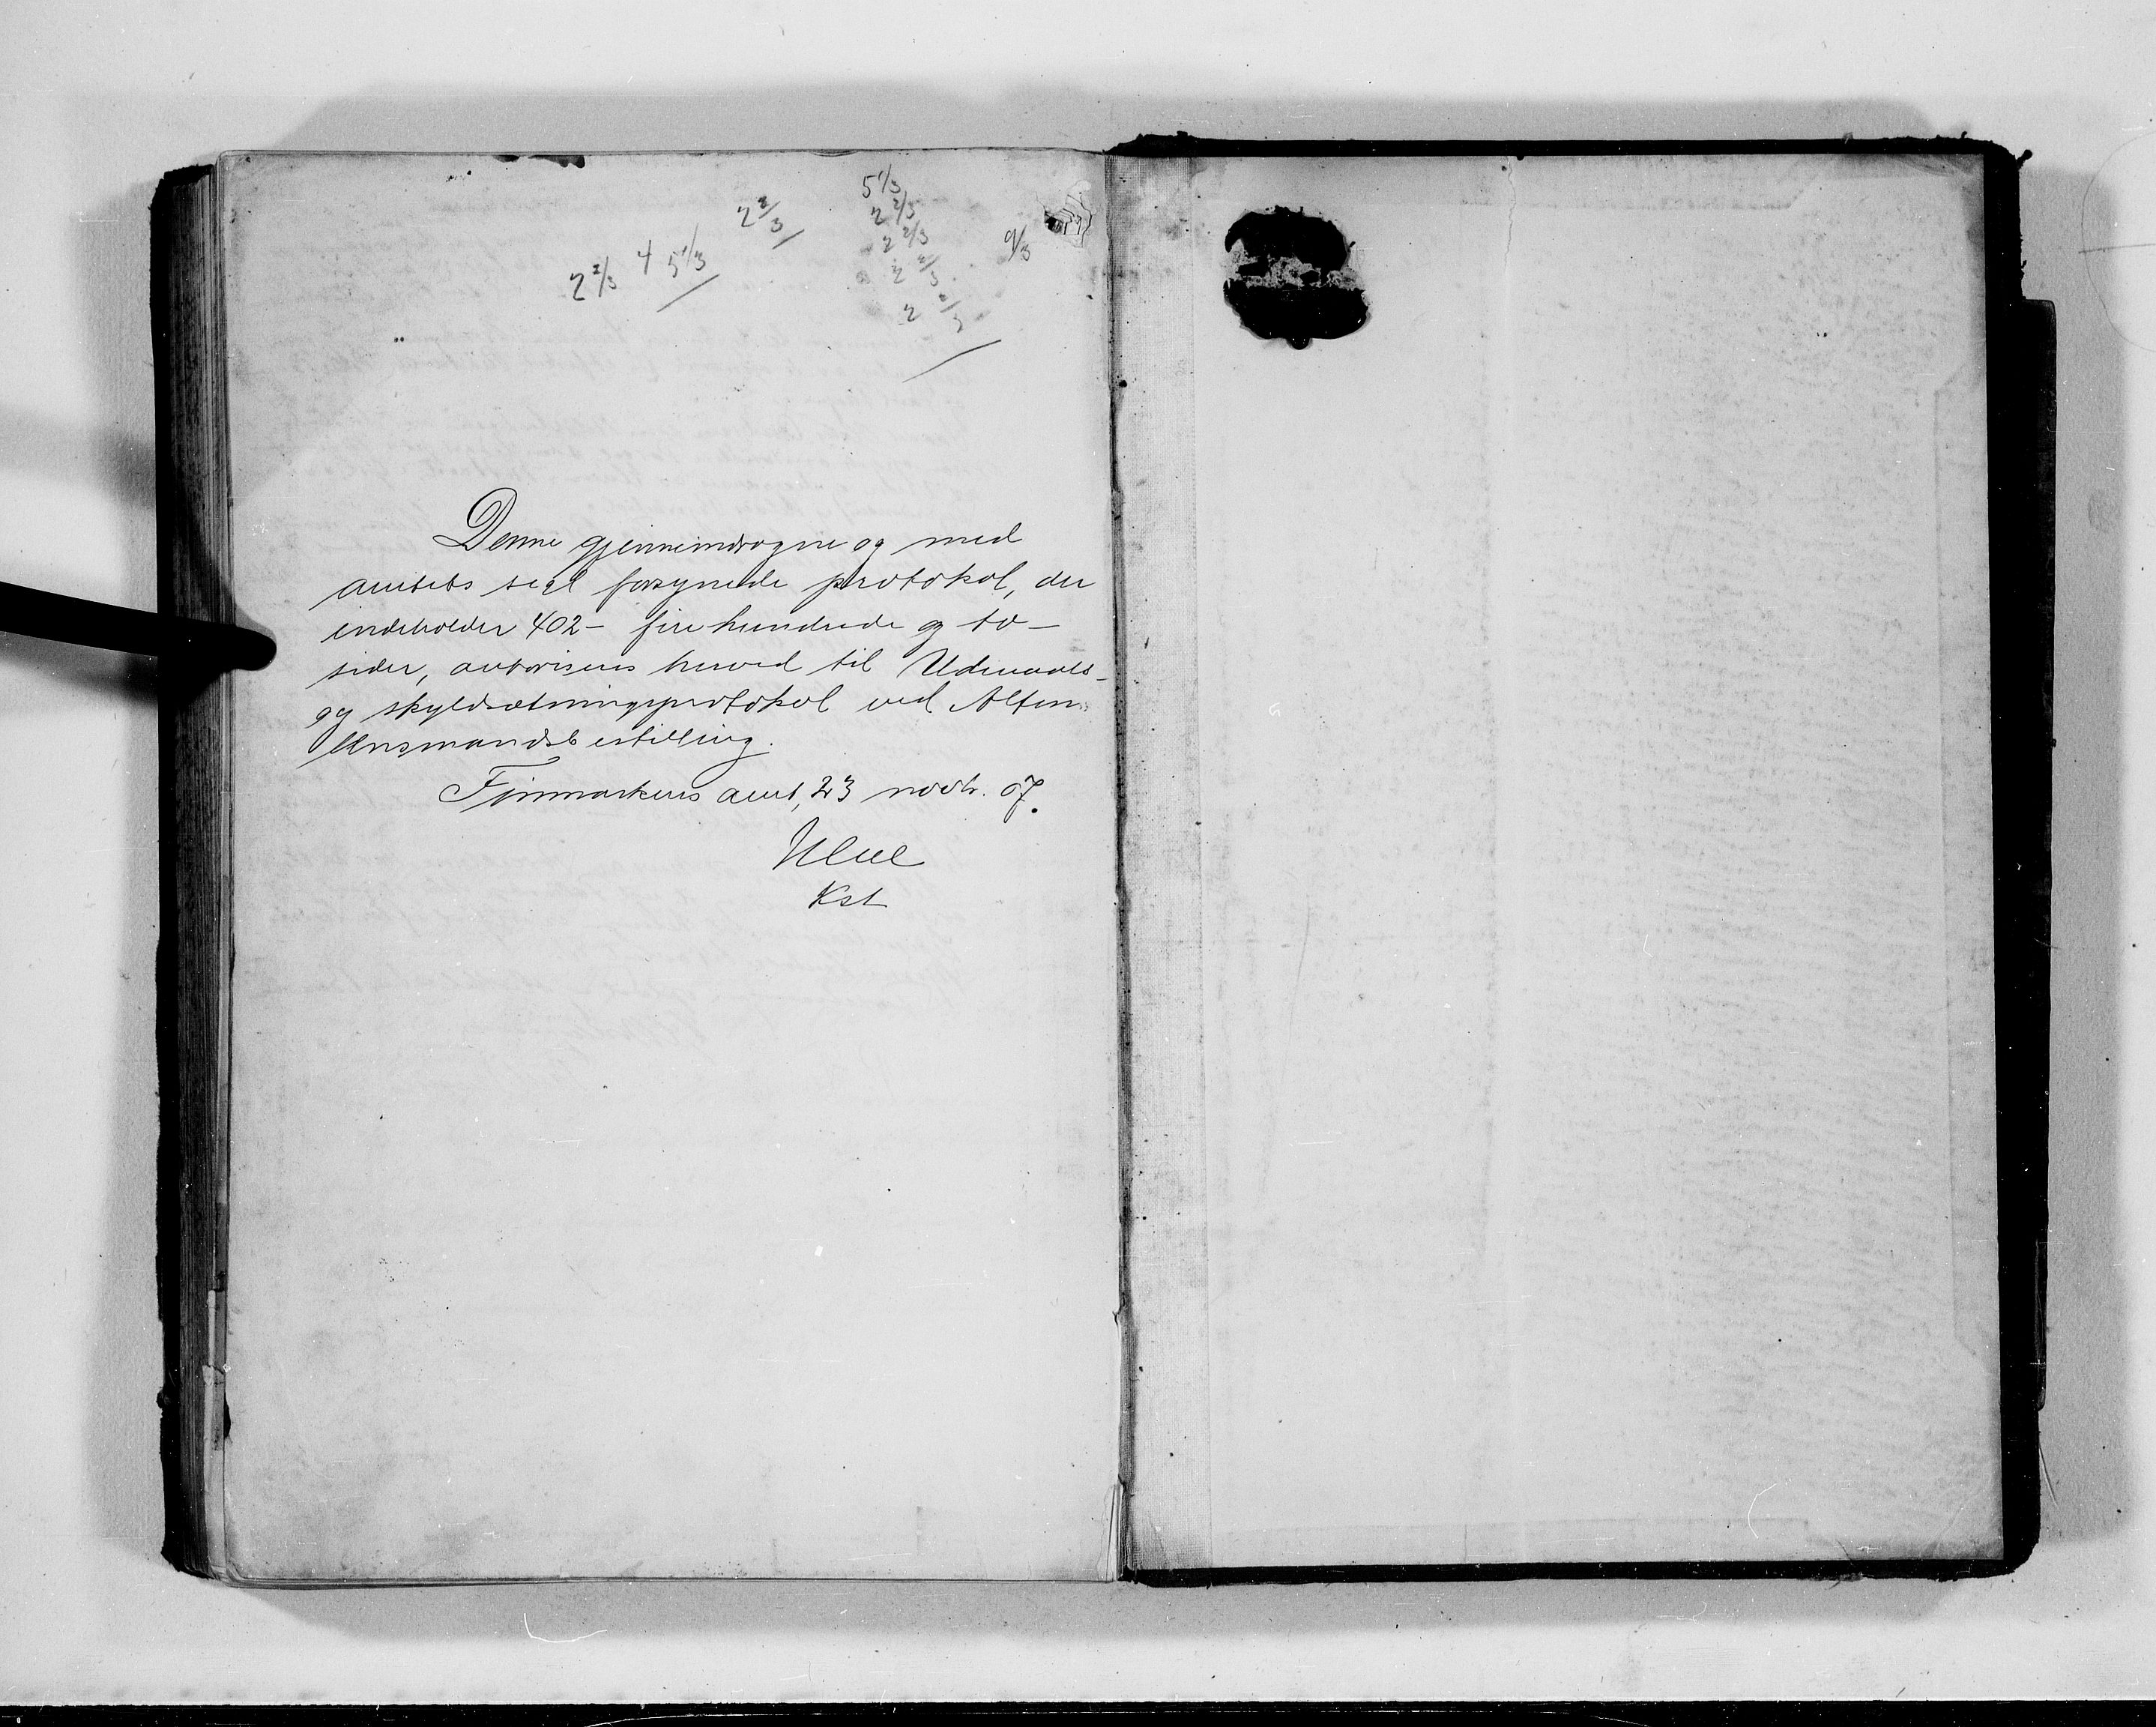 2 2/3
4
5 1/3
2 2/3
5 1/3
2 2/3
2 2/3
2 2/3
2 2/3
9/3
Denne gjennemdragne og med
amtets segl forsynede protokol, der
indeholder 402 – fire hundrede og to –
sider, autoriseres herved til Udmaals-
og skyldsætningsprotokol ved Alten
lensmandsbestilling.
Finmarkens amt, 23 novbr. 07.
Kst